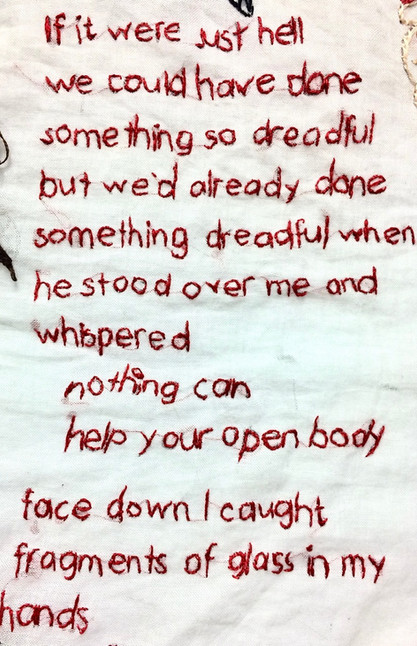 If it were just hell
we could have done
something so dreadful
but we'd already done
something dreadful when
he stood over me and
whispered
nothing can
help your open body
face down I caught
fragments of glass in my
hands